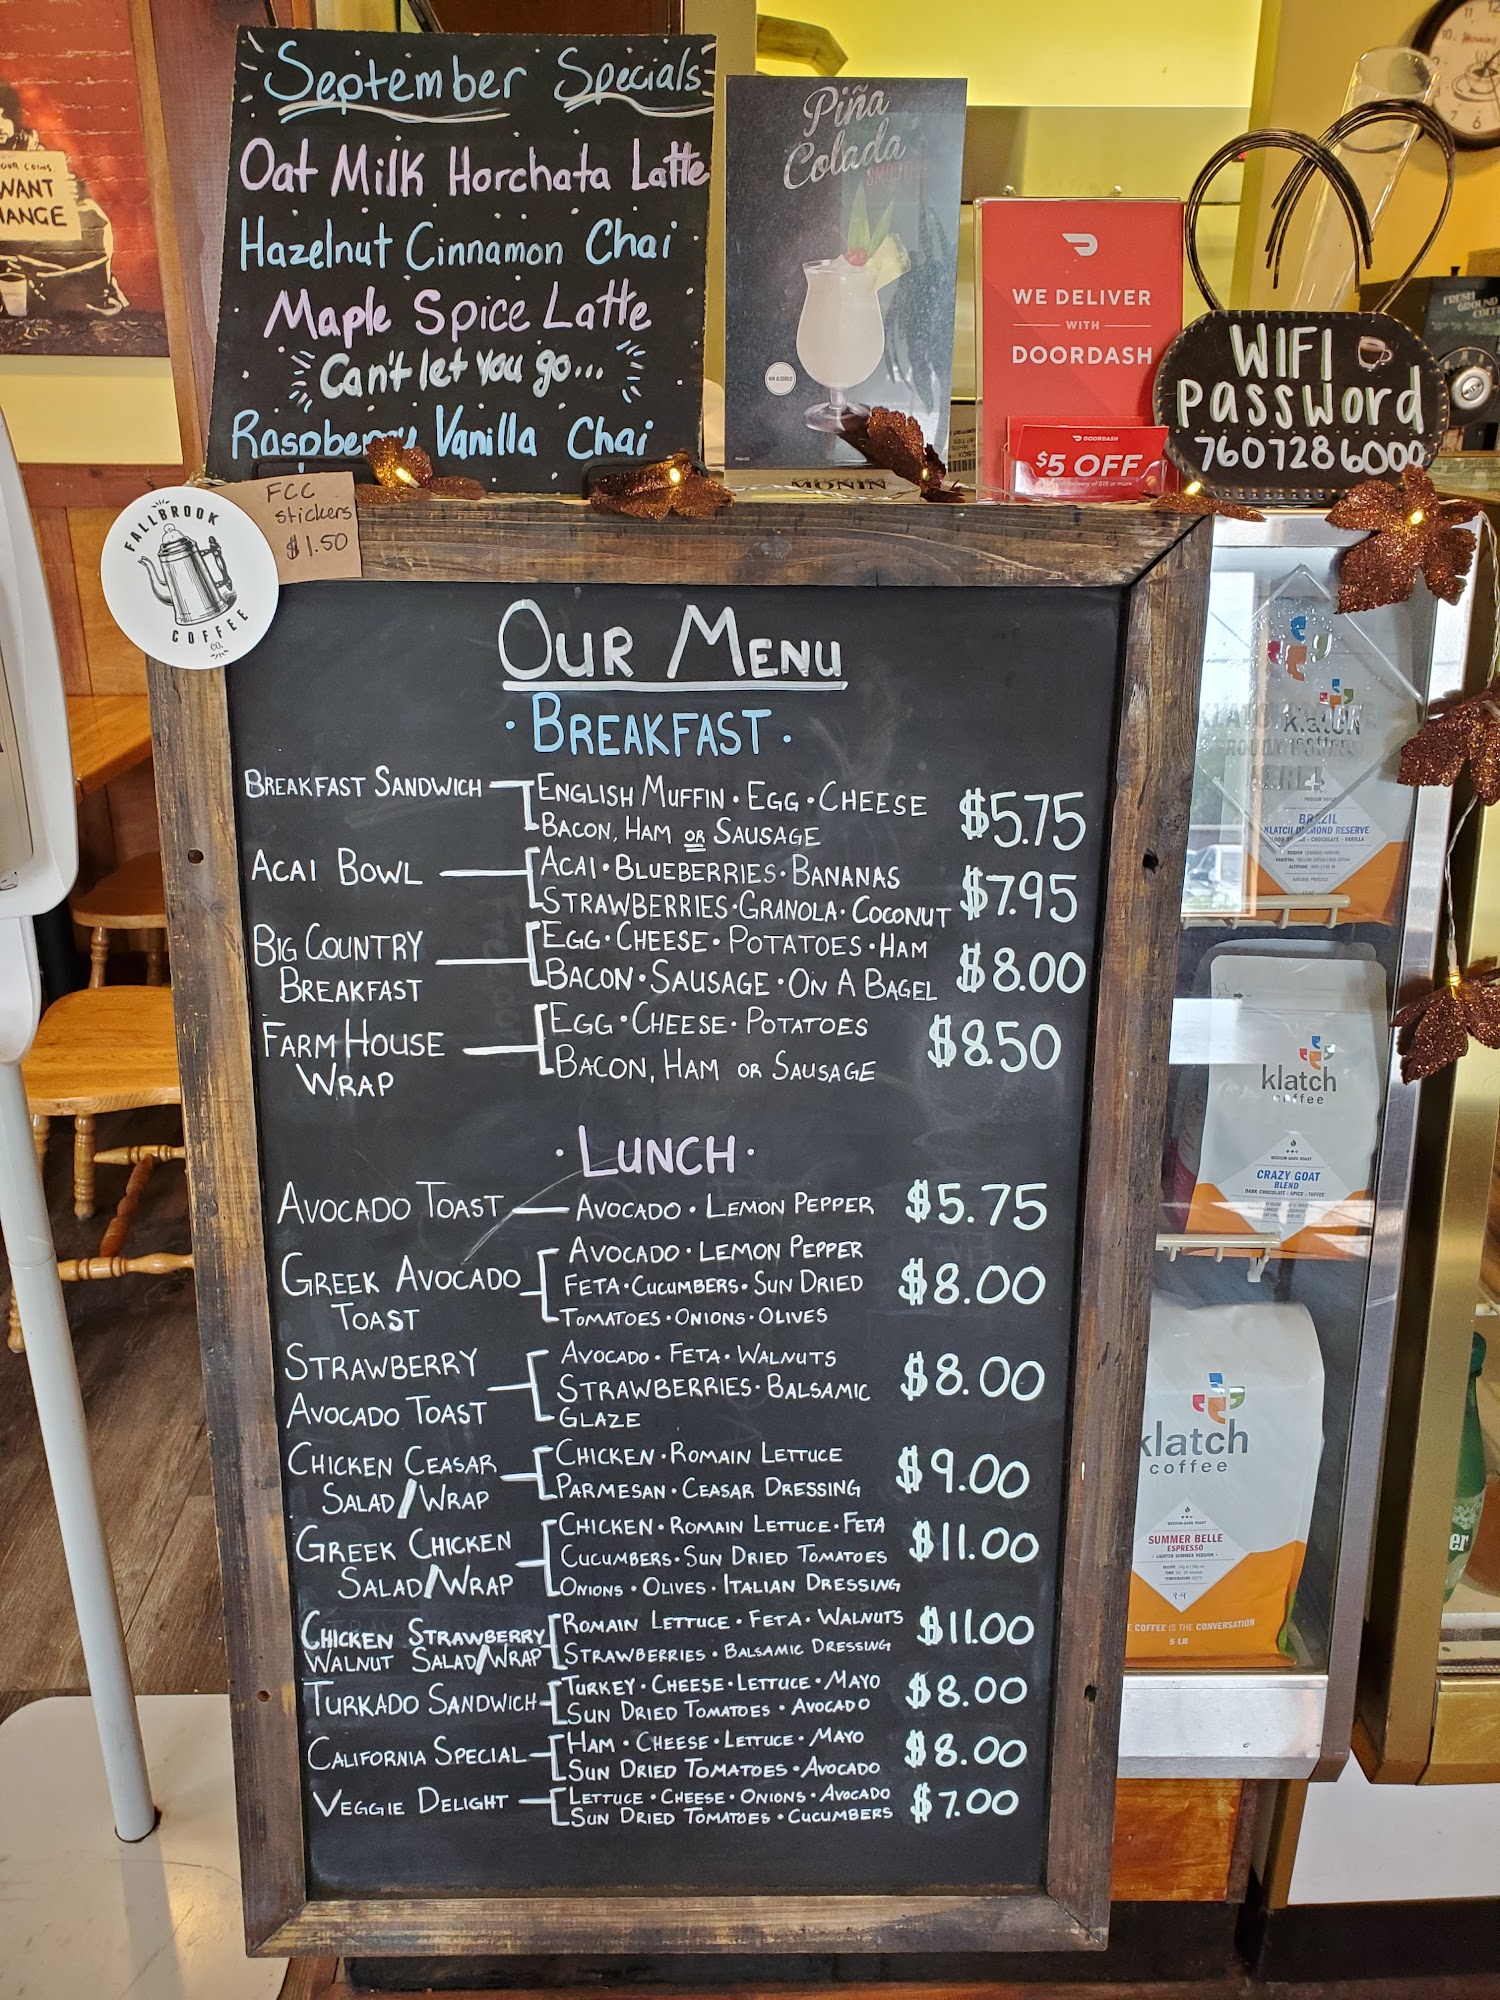 September Specials
Oat Milk Horchata Latte
Hazelnut Cinnamon Chai
Maple Spice Latte
Can't let you go...
Raspberry Vanilla Chai
Piña
Colada
SMOOTHIE
MONIN
WE DELIVER
WITH
DOORDASH
DOORDASH
$5 OFF
WIFI
PASSWORD
7607286000
WANT
FCC
stickers
$1.50
FALLBROOK
COFFEE
CO.
OUR MENU
· BREAKFAST ·
BREAKFAST SANDWICH
ENGLISH MUFFIN · EGG · CHEESE
BACON, HAM OR SAUSAGE
$5.75
ACAI BOWL
ACAI · BLUEBERRIES · BANANAS
STRAWBERRIES · GRANOLA · COCONUT
$7.95
BIG COUNTRY
BREAKFAST
EGG · CHEESE · POTATOES · HAM
BACON · SAUSAGE · ON A BAGEL
$8.00
FARM HOUSE
WRAP
EGG · CHEESE · POTATOES
BACON, HAM OR SAUSAGE
$8.50
· LUNCH ·
AVOCADO TOAST
AVOCADO · LEMON PEPPER
$5.75
GREEK AVOCADO
TOAST
AVOCADO · LEMON PEPPER
FETA · CUCUMBERS · SUN DRIED
TOMATOES · ONIONS · OLIVES
$8.00
STRAWBERRY
AVOCADO TOAST
AVOCADO · FETA · WALNUTS
STRAWBERRIES · BALSAMIC
GLAZE
$8.00
CHICKEN CEASAR
SALAD/WRAP
CHICKEN · ROMAIN LETTUCE
PARMESAN · CEASAR DRESSING
$9.00
GREEK CHICKEN
SALAD/WRAP
CHICKEN · ROMAIN LETTUCE · FETA
CUCUMBERS · SUN DRIED TOMATOES
ONIONS · OLIVES · ITALIAN DRESSING
$11.00
CHICKEN STRAWBERRY
WALNUT SALAD/WRAP
ROMAIN LETTUCE · FETA · WALNUTS
STRAWBERRIES · BALSAMIC DRESSING
$11.00
TURKADO SANDWICH
TURKEY · CHEESE · LETTUCE · MAYO
SUN DRIED TOMATOES · AVOCADO
$8.00
CALIFORNIA SPECIAL
HAM · CHEESE · LETTUCE · MAYO
SUN DRIED TOMATOES · AVOCADO
$8.00
VEGGIE DELIGHT
LETTUCE · CHEESE · ONIONS · AVOCADO
SUN DRIED TOMATOES · CUCUMBERS
$7.00
klatch
BRAZIL
KLATCH DIAMOND RESERVE
klatch
coffee
MEDIUM-DARK ROAST
CRAZY GOAT
BLEND
DARK CHOCOLATE · SPICE · TOFFEE
klatch
coffee
MEDIUM-DARK ROAST
SUMMER BELLE
ESPRESSO
- LIGHTER SUMMER VERSION -
COFFEE IS THE CONVERSATION
5 LB